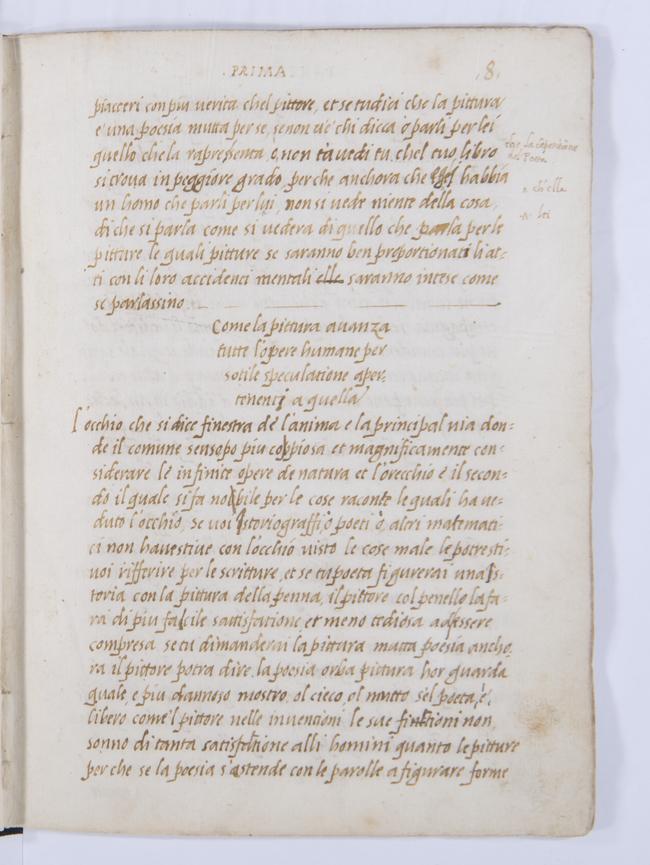 . PRIMA .
.8.
piacceri con piu verita chel pittore, et se tu dici che la pittura
e' una poesia mutta per se, se non ue' chi dicca o parli per lei
quello che la rapresenta o, non t'avedi tu, chel tuo libro
si trova in peggiore grado, perche anchora che habbia
un homo che parli per lui, non si vede niente della cosa
di che si parla come si vedera di quello che parla per le
pitture le quali pitture se saranno ben proportionati li at=
ti con li loro accidenti mentali elle saranno intese come
se parlassino.
Come la pittura avanza
tutte l'opere humane per
sotile speculatione aper.
tenenti a quella
L'occhio che si dice finestra de l'anima e la principal via don=
de il comune senso po piu coppiosa et magnificamente con=
siderare le infinite opere de natura et l'orecchio è il secon=
do il quale si fa nobile per le cose raconte le quali ha ve=
duto l'occhio, se voi istoriograffi, o poeti o, altri matemati=
ci non havestive con l'occhio visto le cose male le potresti=
voi rifferire per le scritture, et se tu poeta figurerai una is=
toria con la pittura della penna, il pittore col penello la fa=
rà di piu facile sattisfatione, et meno tediosa a essere
compresa se tu dimanderai la pittura mutta poesia ancho.
ra il pittore potra dire, la poesia orba pittura hor guarda
quale e piu dannoso mostro, ol cieco, ol mutto sel poeta, è,
libero come'l pittore nelle inventioni, le sue fintioni non
sonno di tanta satisfatione alli homini quanto le pitture
per che se la poesia s'astende con le parolle a figurare forme
del Poeta
ch'ella
lei